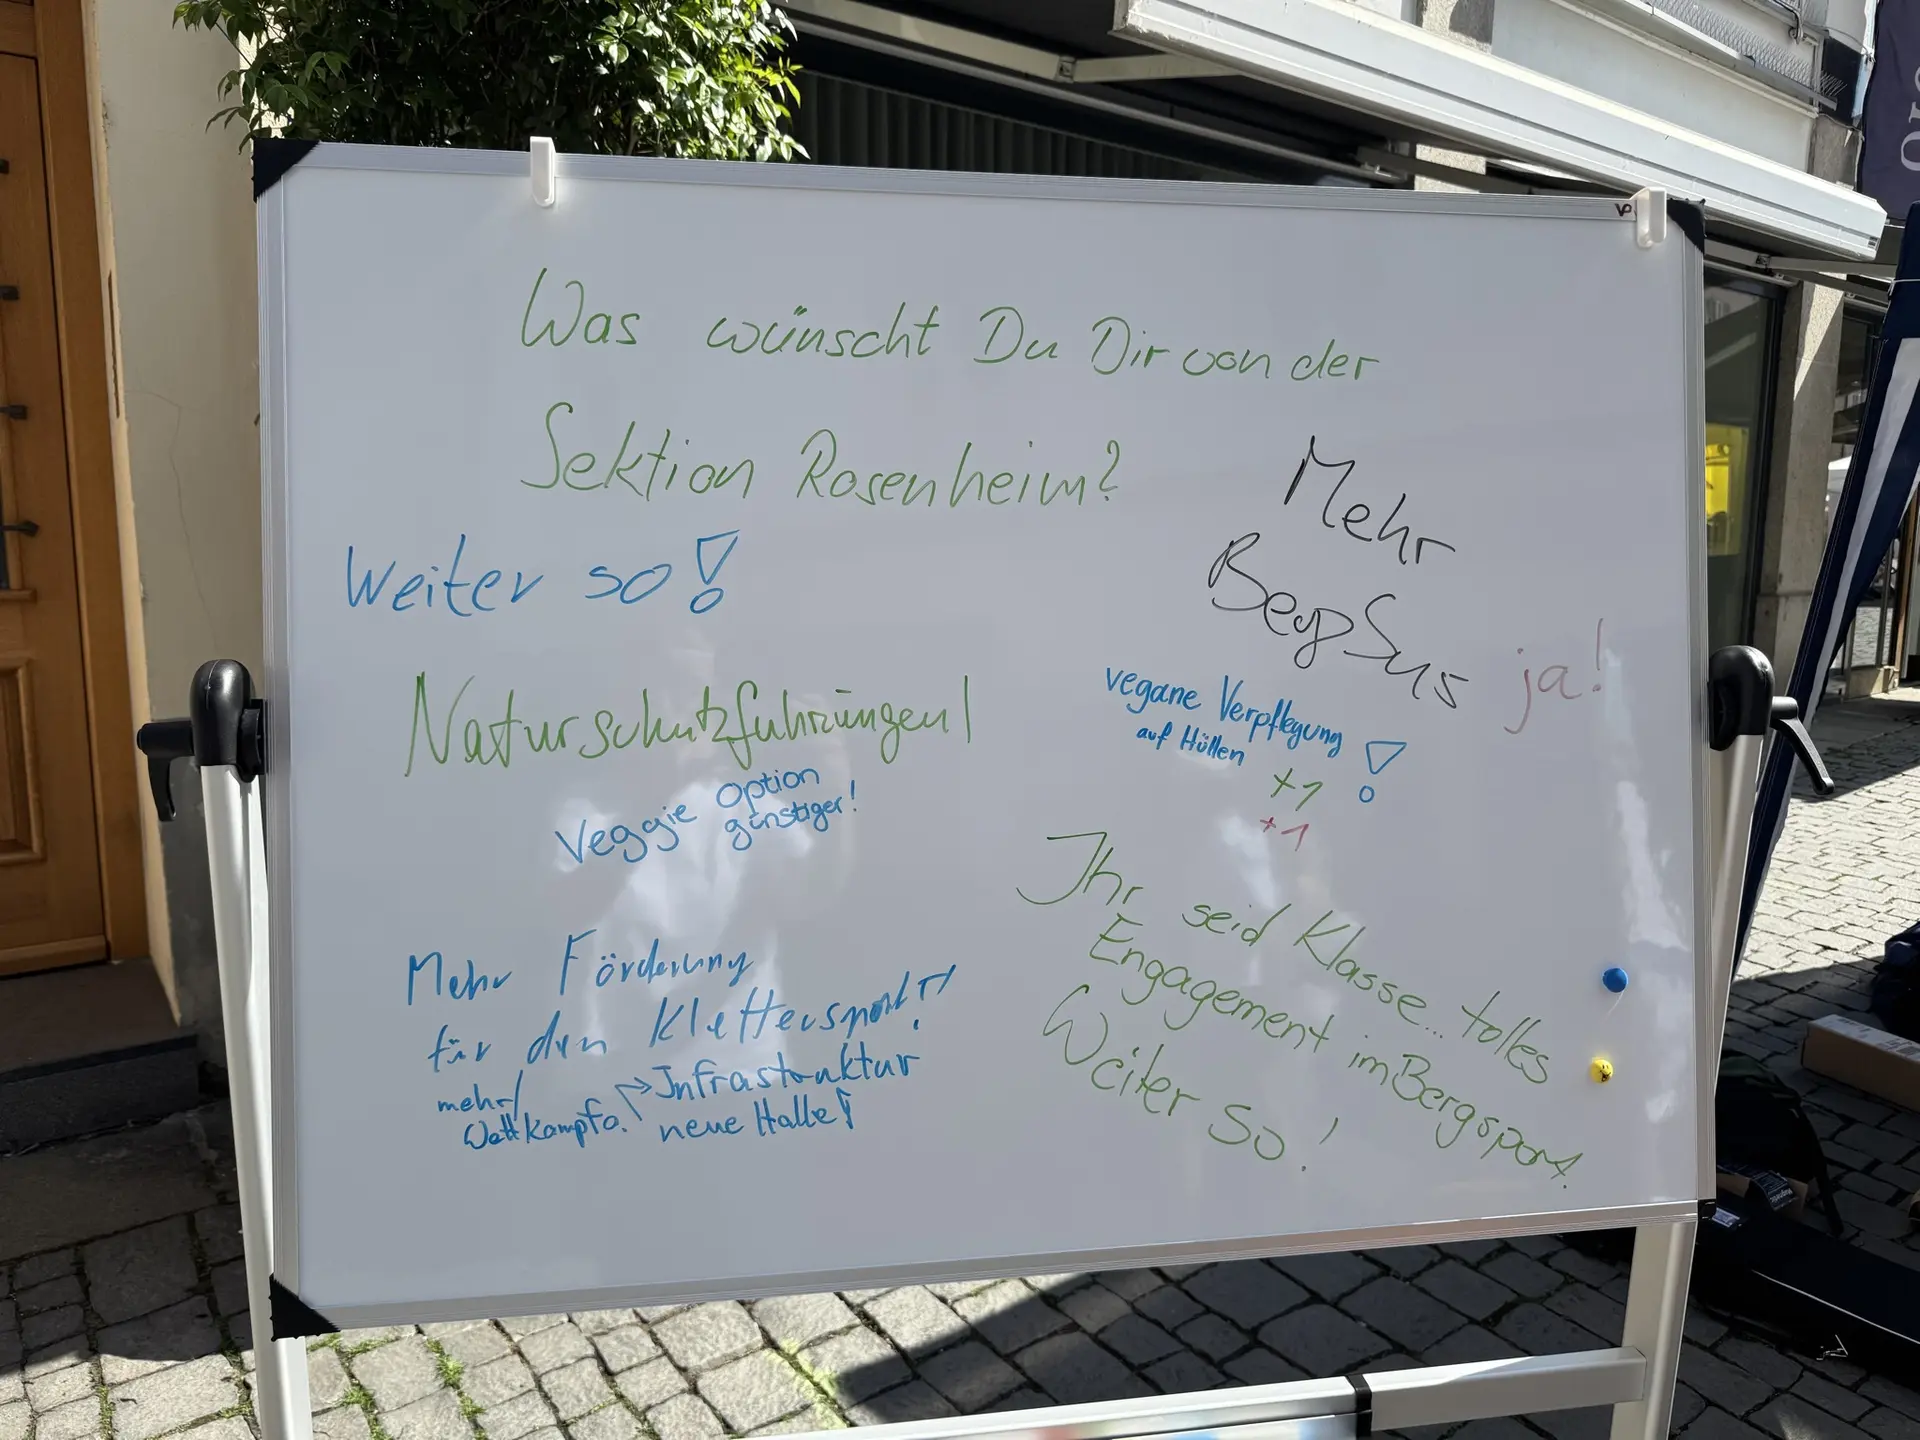 Was wünscht Du Dir von der
Sektion Rosenheim?
Weiter so!
Mehr
BergSus
ja!
Naturschutzführungen!
Veggie Option
günstiger!
vegane Verpflegung
auf Hütten !
+1
+1
Mehr Förderung
für den Klettersport!!
mehr
Wettkämpfe.
Infrastruktur
neue Halle!
Ihr seid Klasse... tolles
Engagement im Bergsport.
Weiter so!
VP